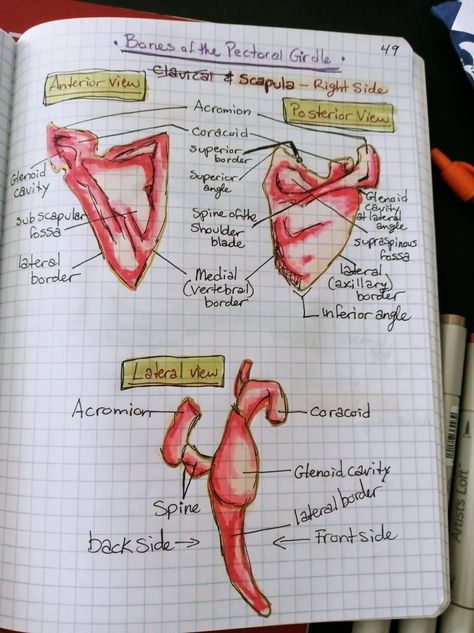 49
• Bones of the Pectoral Girdle •
Clavical & Scapula – Right Side
Anterior view
Acromion
Posterior View
Coracoid
Glenoid
cavity
superior
border
Superior
angle
Glenoid
cavity
at lateral
angle
subscapular
fossa
Spine of the
Shoulder
blade
supraspinous
fossa
lateral
border
Medial
(vertebral)
border
lateral
(axillary)
border
inferior angle
Lateral view
Acromion
Coracoid
Glenoid cavity
Spine
lateral border
back side →
← Front side
Artists Loft